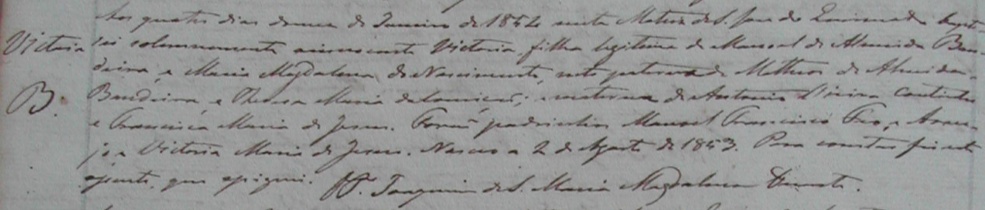 Aos quatro dias do mez de Janeiro de 1854 nesta Matriz de S. Jose de Queimadas baptí-
Victoria sei solemnemente a innocente Victoria, filha legitima de Manoel de Almeida Ban-
deira, e Maria Magdalena do Nascimento, neta paterna de Matheus de Almeida
B. Bandeira, e Theresa Maria da Conceicaõ; e materna de Antonio Vieira
e Francisca Maria de Jesus. Foraõ padrinhos Manoel Francisco e Arau-
jo e Victoria Maria de Jesus. Nasceo a 2 de Agosto de 1853. Para constar fiz este
assento, que assignei. Fr. Joaquim de S. Maria Magdalena Duarte.